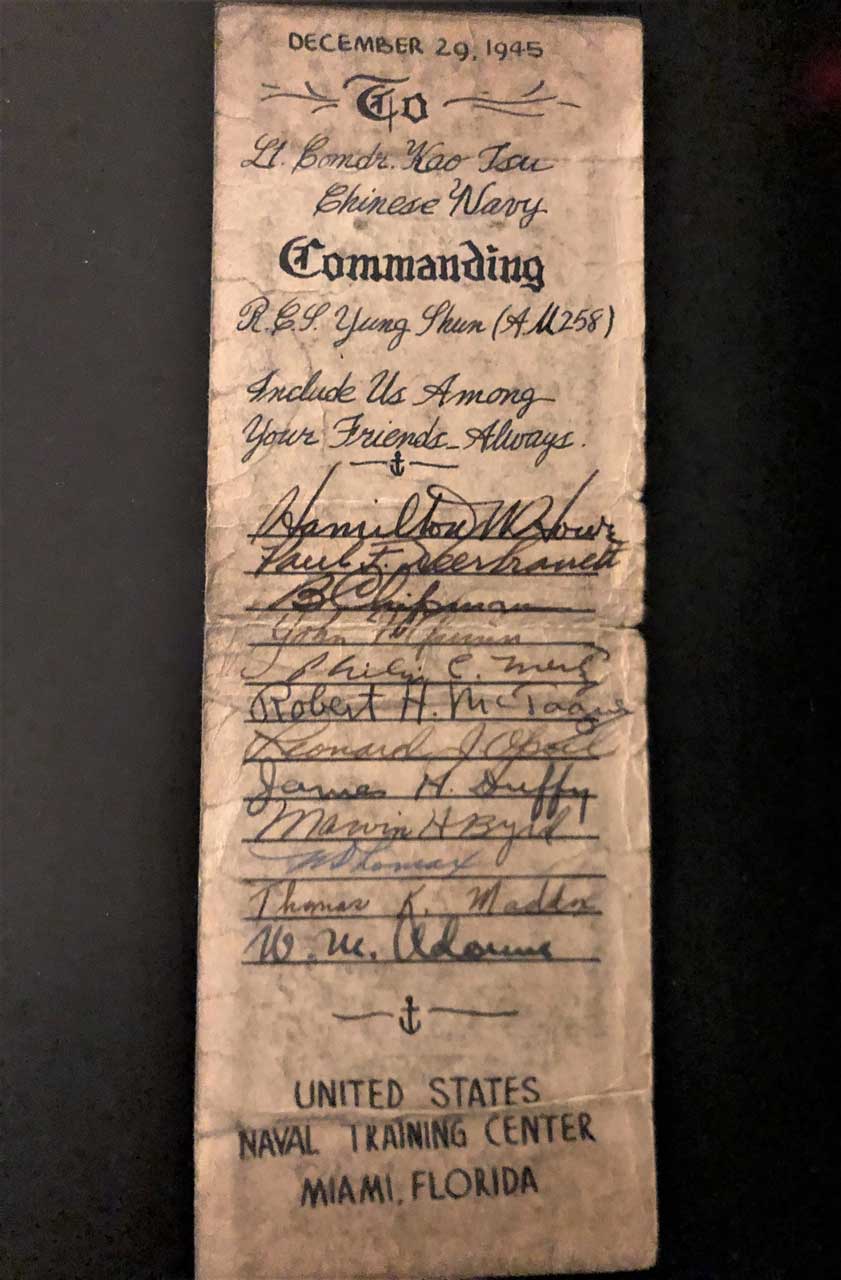 DECEMBER 29, 1945
To
Lt. Comdr. Kao Tsu
Chinese Navy
Commanding
R.C.S. Yung Shun (AM258)
Include Us Among
Your Friends_Always.
Hamilton W. Howe
Paul F.
B Chipman
John
Philip C.
Robert H. McTague
Leonard J
James H. Duffy
Marvin H Byrd
Lomax
Thomas K. Maddox
W. M.
UNITED STATES
NAVAL TRAINING CENTER
MIAMI, FLORIDA